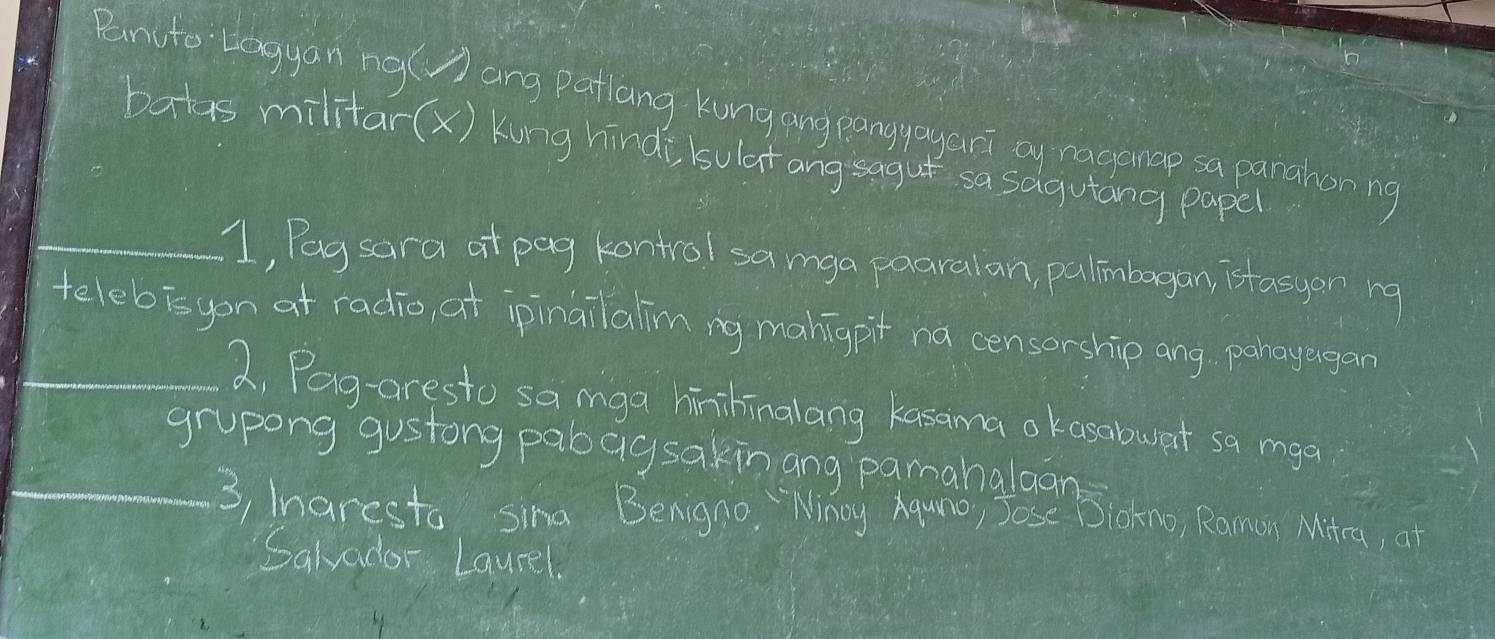 Panuto: Lagyan ng (✓) ang patlang kung ang pangyayari ay naganap sa panahon ng
batas militar (X) kung hindi, Isulat ang sagut sa sagutang papel
1, Pag sara at pag kontrol sa mga paaralan, palimbagan, istasyon ng
telebisyon at radio, at ipinailalim ng mahigpit na censorship ang pahayagan
2, Pag-aresto sa mga hinihinalang kasama o kasabwat sa mga
grupong gustong pabagsakin ang pamahalaan
3, Inaresto sina Benigno "Ninoy Aquino, Jose Diokno, Ramon Mitra, at
Salvador Laurel.